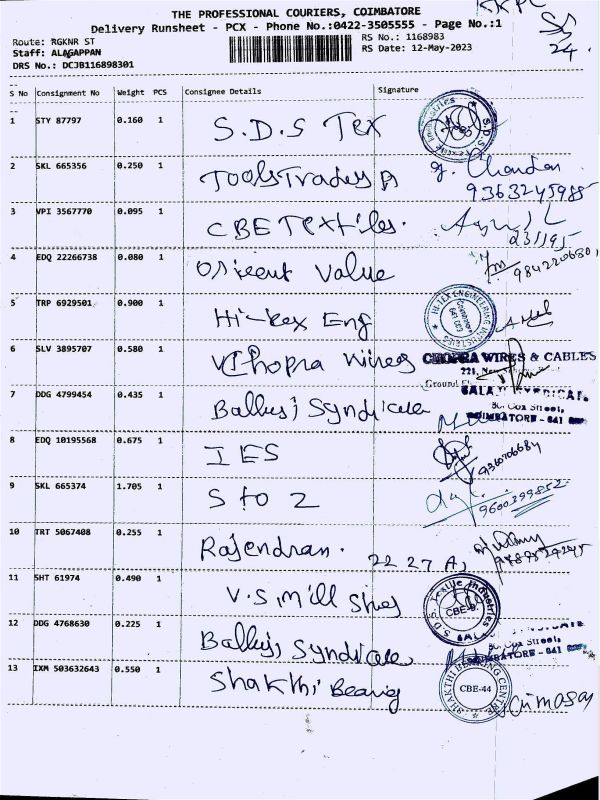 THE PROFESSIONAL COURIERS, COIMBATORE
Delivery Runsheet - PCX - Phone No.:0422-3505555 - Page No.:1
Route: RGKNR ST RS No.: 1168983
Staff: ALAGAPPAN RS Date: 12-May-2023
DRS No.: DCJB116898301
24.
S No Consignment No Weight PCS Consignee Details Signature
1 STY 87797 0.160 1 S.D.S Tex
2 SKL 665356 0.250 1 Tools Traders g. Chandan
9363245985
3 VPI 3567770 0.095 1 CBE Textiles.
4 EDQ 22266738 0.080 1 Orient Value
5 TRP 6929501 0.900 1 Hi-tex Eng
HI-TEX ENGINEERING INDUSTRIES
6 SLV 3895707 0.580 1 Chopra Wires CHOPRA WIRES & CABLES
221,
Ground
7 DDG 4799454 0.435 1 Balluji Syndicate
80, Cox Street,
COIMBATORE - 641
8 EDQ 10195568 0.675 1 IES
9 SKL 665374 1.705 1 S to Z 9600399852
10 TRT 5067408 0.255 1 Rajendran. 22 27 A,
11 SHT 61974 0.490 1 V.S, Mill Stores
S.D.S. Textile Industries
CBE-9.
12 DDG 4768630 0.225 1 Balluji Syndicate
80, Cox Street,
COIMBATORE - 641
13 IXM 503632643 0.550 1 Shakthi Bearing
SHAKTHI BEARING CENTRE
CBE-44